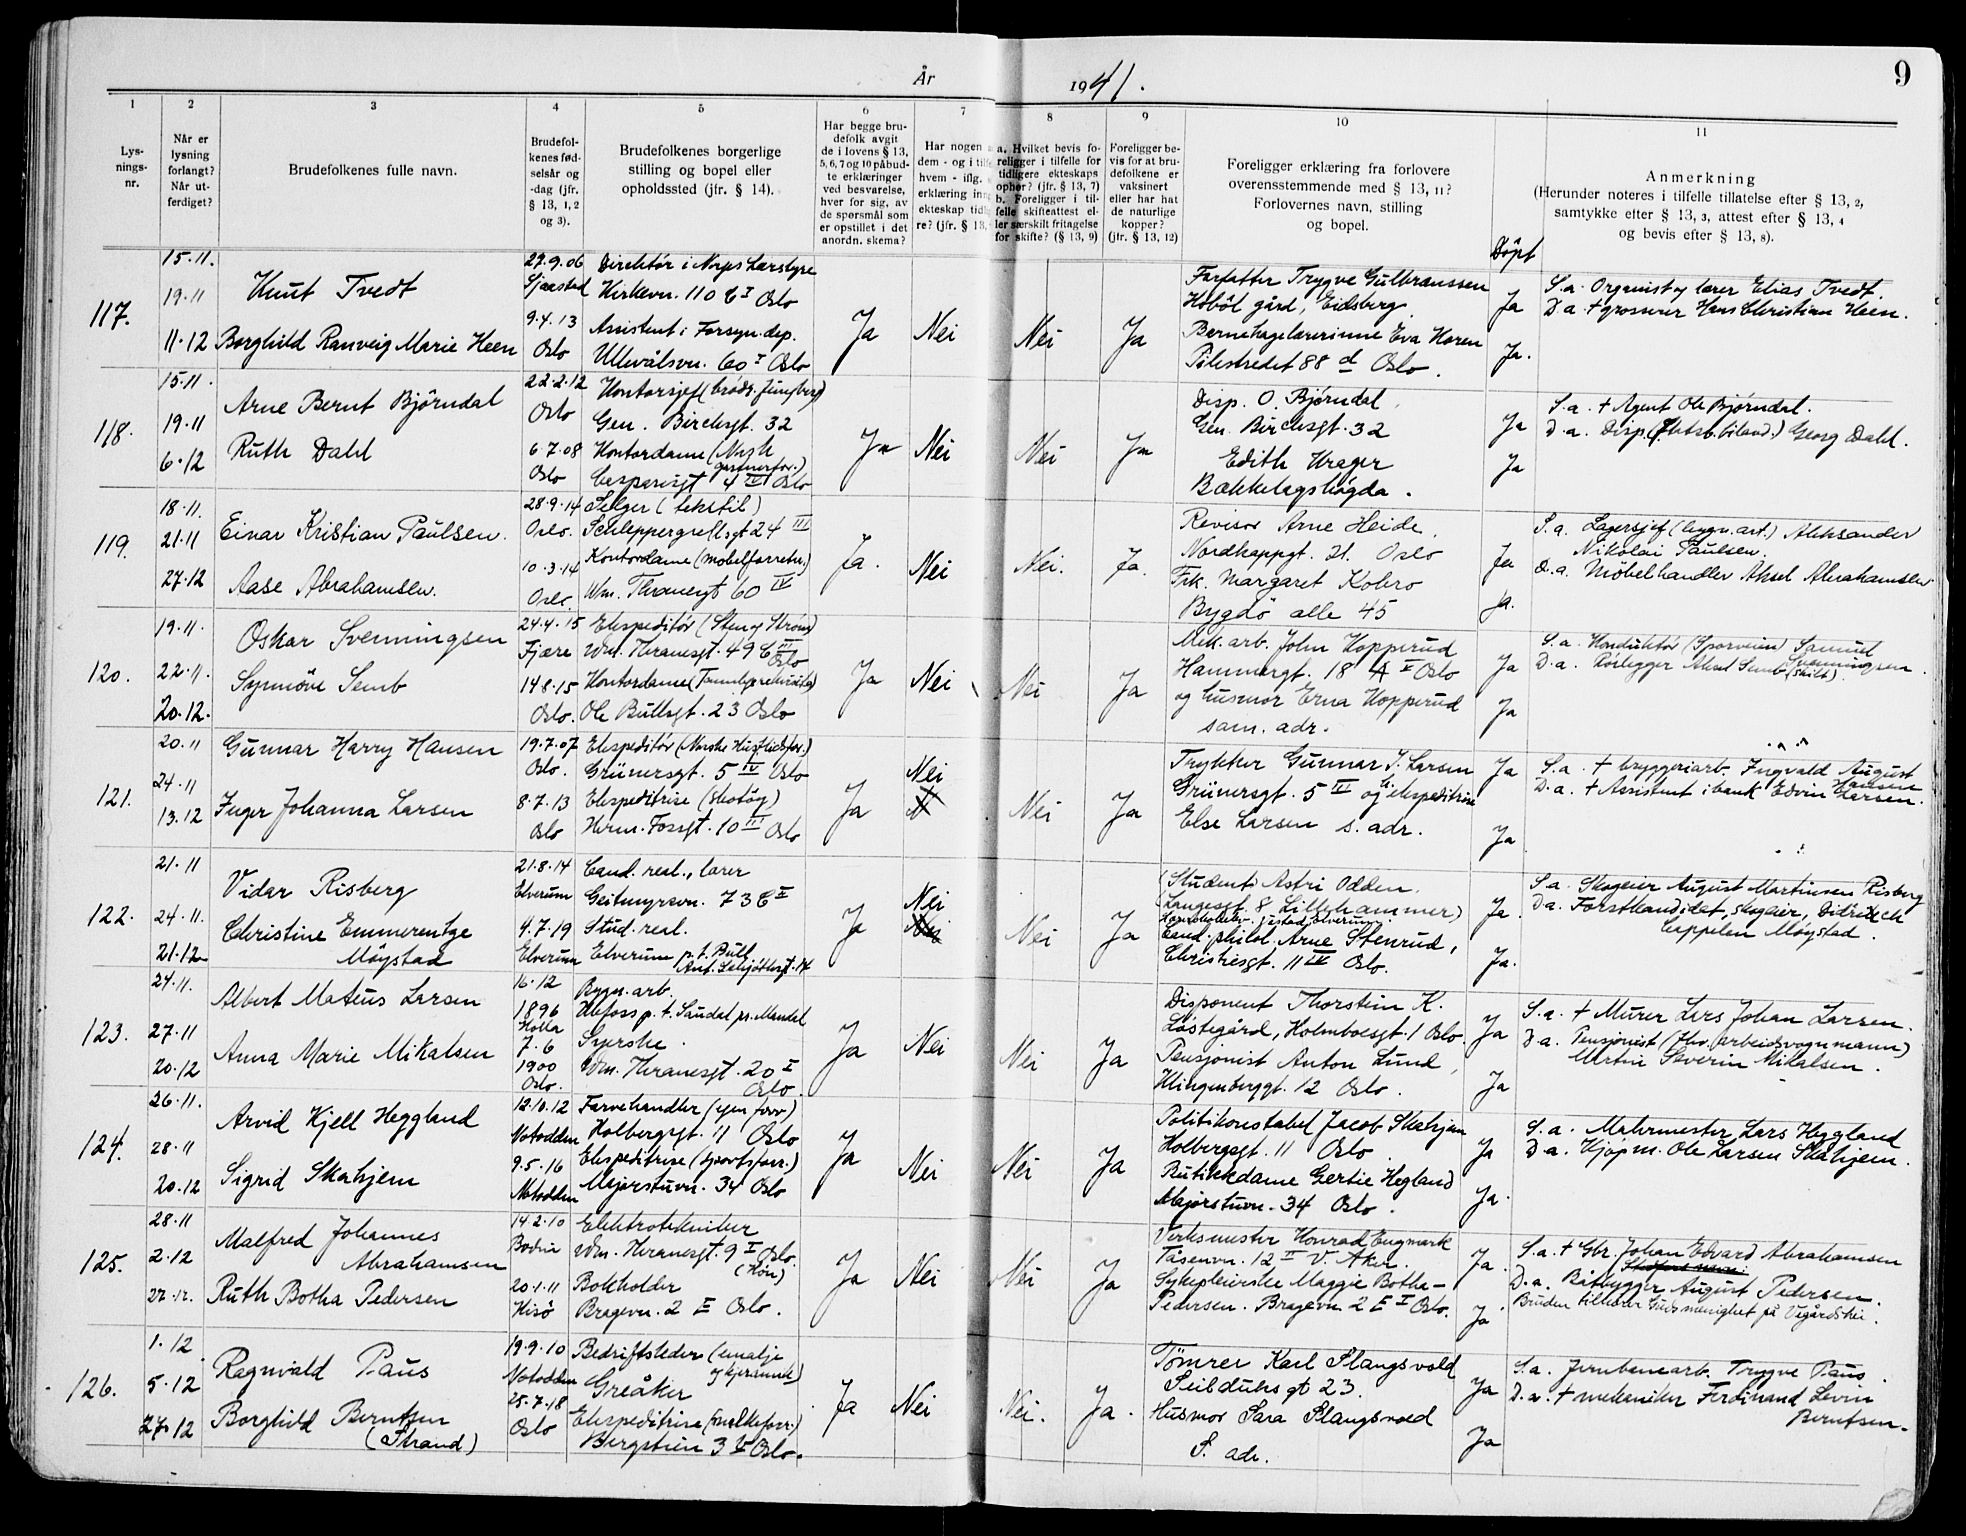 År 1941.
9
1 2 3 4 5 6 7 8 9 10 11
Lysnings-nr.
Når er lysning forlangt? Når utferdiget?
Brudefolkenes fulle navn.
Brudefolkenes fødselsår og -dag (jfr. § 13, 1, 2 og 3).
Brudefolkenes borgerlige stilling og bopel eller opholdssted (jfr. § 14).
Har begge brudefolk avgit de i lovens § 13, 5, 6, 7 og 10 påbudte erklæringer ved besvarelse, hver for sig, av de spørsmål som er opstillet i det anordn. skema?
Har nogen a
dem - og i tilf
hvem - iflg.
erklæring inn
ekteskap tidl
re? (jfr. § 13,
a. Hvilket bevis foreligger i tilfelle for tidligere ekteskaps ophør? (jfr. § 13, 7)
b. Foreligger i tilfelle skifteattest eller særskilt fritagelse for skifte? (§ 13, 9)
Foreligger bevis for at brudefolkene er vaksinert eller har hat de naturlige kopper? (jfr. § 13, 12)
Foreligger erklæring fra forlovere overensstemmende med § 13, 11? Forlovernes navn, stilling og bopel.
Döpt
Anmerkning
(Herunder noteres i tilfelle tillatelse efter § 13, 2, samtykke efter § 13, 3, attest efter § 13, 4 og bevis efter § 13, 8).
117.
15.11.
19.11
11.12
Knut Tvedt
Borghild Ranveig Marie Heen
27.9.06
Sjaastad
9.4.13
Oslo
Direktör i Norges Lærstyre
Kirkevn. 110 C I Oslo
Assistent i Forsyn.dep.
Ullevålsvn. 60 I Oslo
Ja Nei Nei Ja
Forfatter Trygve Gulbranssen
Hobøl gård, Eidsberg
Barnehagelærerinne Eva Horen
Pilestredet 88 d Oslo.
Ja
Ja.
S.a. Organist og lærer Elias Tvedt.
D.a. † grosserer Hans Christian Heen.
118.
15.11.
19.11
6.12
Arne Bernt Björndal
Ruth Dahl
22.2.12
Oslo
6.7.08
Oslo
Kontorsjef (brödr. Ljungberg)
Gen. Birchsgt. 32
Kontordame (Norsk gartnerfor.)
Casparisgt 4 IV Oslo
Ja Nei Nei Ja
Disp. O. Bjørndal
Gen. Birchsgt. 32
Edith Krager
Bækkelagshögda.
Ja
Ja
S.a. † Agent Ole Bjørndal.
D.a. Disp. Georg Dahl.
119.
18.11.
21.11
27.12
Einar Kristian Paulsen.
Aase Abrahamsen.
28.9.14
Oslo.
10.3.14
Oslo
Selger (tekstil)
Schleppegrellsgt 24 III
Kontordame (møbelforretn.)
Wm. Thranesgt 60 IV
Ja. Nei Nei. Ja.
Revisor Arne Heide.
Nordkappgt. 21. Oslo
Frk. Margaret Kobro
Bygdö alle 45
Ja
Ja.
S.a. Lagersjef (bygn.art.) Aleksander
Nikolai Paulsen.
D.a. Möbelhandler Aksel Abrahamsen
120.
19.11.
22.11.
20.12.
Oskar Svenningsen
Synnöve Semb
24.4.15
Fjære
14.8.15
Oslo.
Ekspeditör (Sten og Ström)
Wm. Thranesgt. 49 C III Oslo
Kontordame
Ole Bullsgt. 23 Oslo
Ja Nei Nei Ja
Mek.arb. John Kopperud
Hammergt. 18 A II Oslo
og husmor Erna Kopperud
sam. adr.
Ja
Ja
S.a. Konduktör (Sporveien) Samuel Svenningsen.
D.a. Rörlegger Aksel Semb (skilt).
121.
20.11
24.11
13.12
Gunnar Harry Hansen
Inger Johanna Larsen
19.7.07
Oslo.
8.7.13
Oslo
Ekspeditör (Norske Husflidsfor.)
Grünersgt. 5 IV Oslo
Ekspeditrise (skotöy)
Herm. Fossgt. 10 III Oslo
Ja Nei Nei Ja
Trykker Gunnar J. Larsen
Grünersgt. 5 IV og ekspeditrise
Else Larsen s. adr.
Ja
Ja
S.a. † bryggeriarb. Ingvald August Hansen
D.a. † Assistent i bank Edvin Larsen.
122.
21.11
24.11.
21.12
Vidar Risberg
Christine Emmerentze
Möystad
21.8.14
Elverum
4.7.19
Elverum
Cand. real., lærer
Geitmyrsvn. 73 C II
Stud. real.
Elverum p.t. Bull
Ant. Schjöttsgt. 14
Ja Nei Nei Ja
(Student Astri Odden.
Langesgt 8 Lillehammer)
Cand. philol. Arne Stenrud,
Christiesgt. 11 IV Oslo.
Ja.
Ja.
S.a. Skogeier August Martinsen Risberg
D.a. Forstkandidat, skogeier, Didrich
Cappelen Möystad.
123.
24.11.
27.11
20.12
Albert Mateus Larsen
Anna Marie Mikalsen
16.12
1896
Holla
7.6
1900
Oslo.
Bygn.arb.
Ulefoss p.t. Laudal pr. Mandal
Syerske.
Wm. Thranesgt. 20 I
Oslo.
Ja Nei Nei Ja
Disponent Thorstein K.
Løstegård, Holmboesgt. 1 Oslo.
Pensjonist Anton Lund,
Klingenberggt. 12 Oslo.
Ja
Ja
S.a. † Murer Lars Johan Larsen.
D.a. Pensjonist (fhv. arbeidsvognmann)
Martin Severin Mikalsen.
124.
26.11.
28.11
20.12
Arvid Kjell Heggland
Sigrid Skahjem
12.10.12
Notodden
9.5.16
Notodden
Farvehandler (egen forr)
Holbergsgt. 11 Oslo
Ekspeditrise (sportsforr.)
Majorstuvn. 34 Oslo
Ja Nei Nei Ja
Politikonstabel Jacob Skahjem
Holbergsgt. 11 Oslo.
Butikkdame Gertie Hegland
Majorstuvn. 34 Oslo.
Ja
Ja.
S.a. Malermester Lars Heggland
D.a. Kjöpm. Ole Larsen Skahjem.
125.
28.11
2.12
27.12.
Malfred Johannes
Abrahamsen
Ruth Botha Pedersen
14.2.10
Bodin
20.1.11
Hisö
Elektrotekniker
Wm. Thranesgt. 9 I Oslo.
Bokholder
Bragevn. 2 E Oslo.
Ja Nei Nei Ja
Verksmester Konrad Engmark
Tåsenvn. 12 II V. Aker.
Sykepleierske Maggie Botha-
Pedersen. Bragevn 2 E I Oslo.
Ja.
Ja.
S.a. † Gbr. Johan Edvard Abrahamsen
D.a. Båtbygger August Pedersen.
Bruden tilhører Guds menighet på Vegårdshei.
126.
1.12
5.12
27.12
Ragnvald Paus
Borghild Berntsen
(Strand)
19.9.10
Notodden
25.7.18
Oslo
Bedriftsleder (emalje
Greåker
Ekspeditrise (melkeforr.)
Bergstien 3 Oslo.
Ja Nei Nei. Ja.
Tömrer Karl Slangsvold
Seilduksgt 23.
Husmor Sara Slangsvold
S. adr.
Ja
Ja
S.a. Jernbanearb. Trygve Paus.
D.a. † mekaniker Ferdinand Levin
Berntsen.